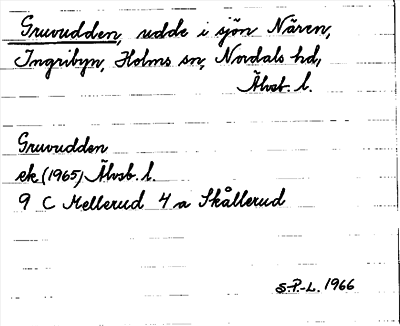 Gruvudden, udde i sjön Nären,
Ingribyn, Holms sn, Nordals hd,
Älvsb. l.
Gruvudden
ek (1965) Älvsb. l.
9 C Mellerud 4 a Skållerud
S.P.-L. 1966